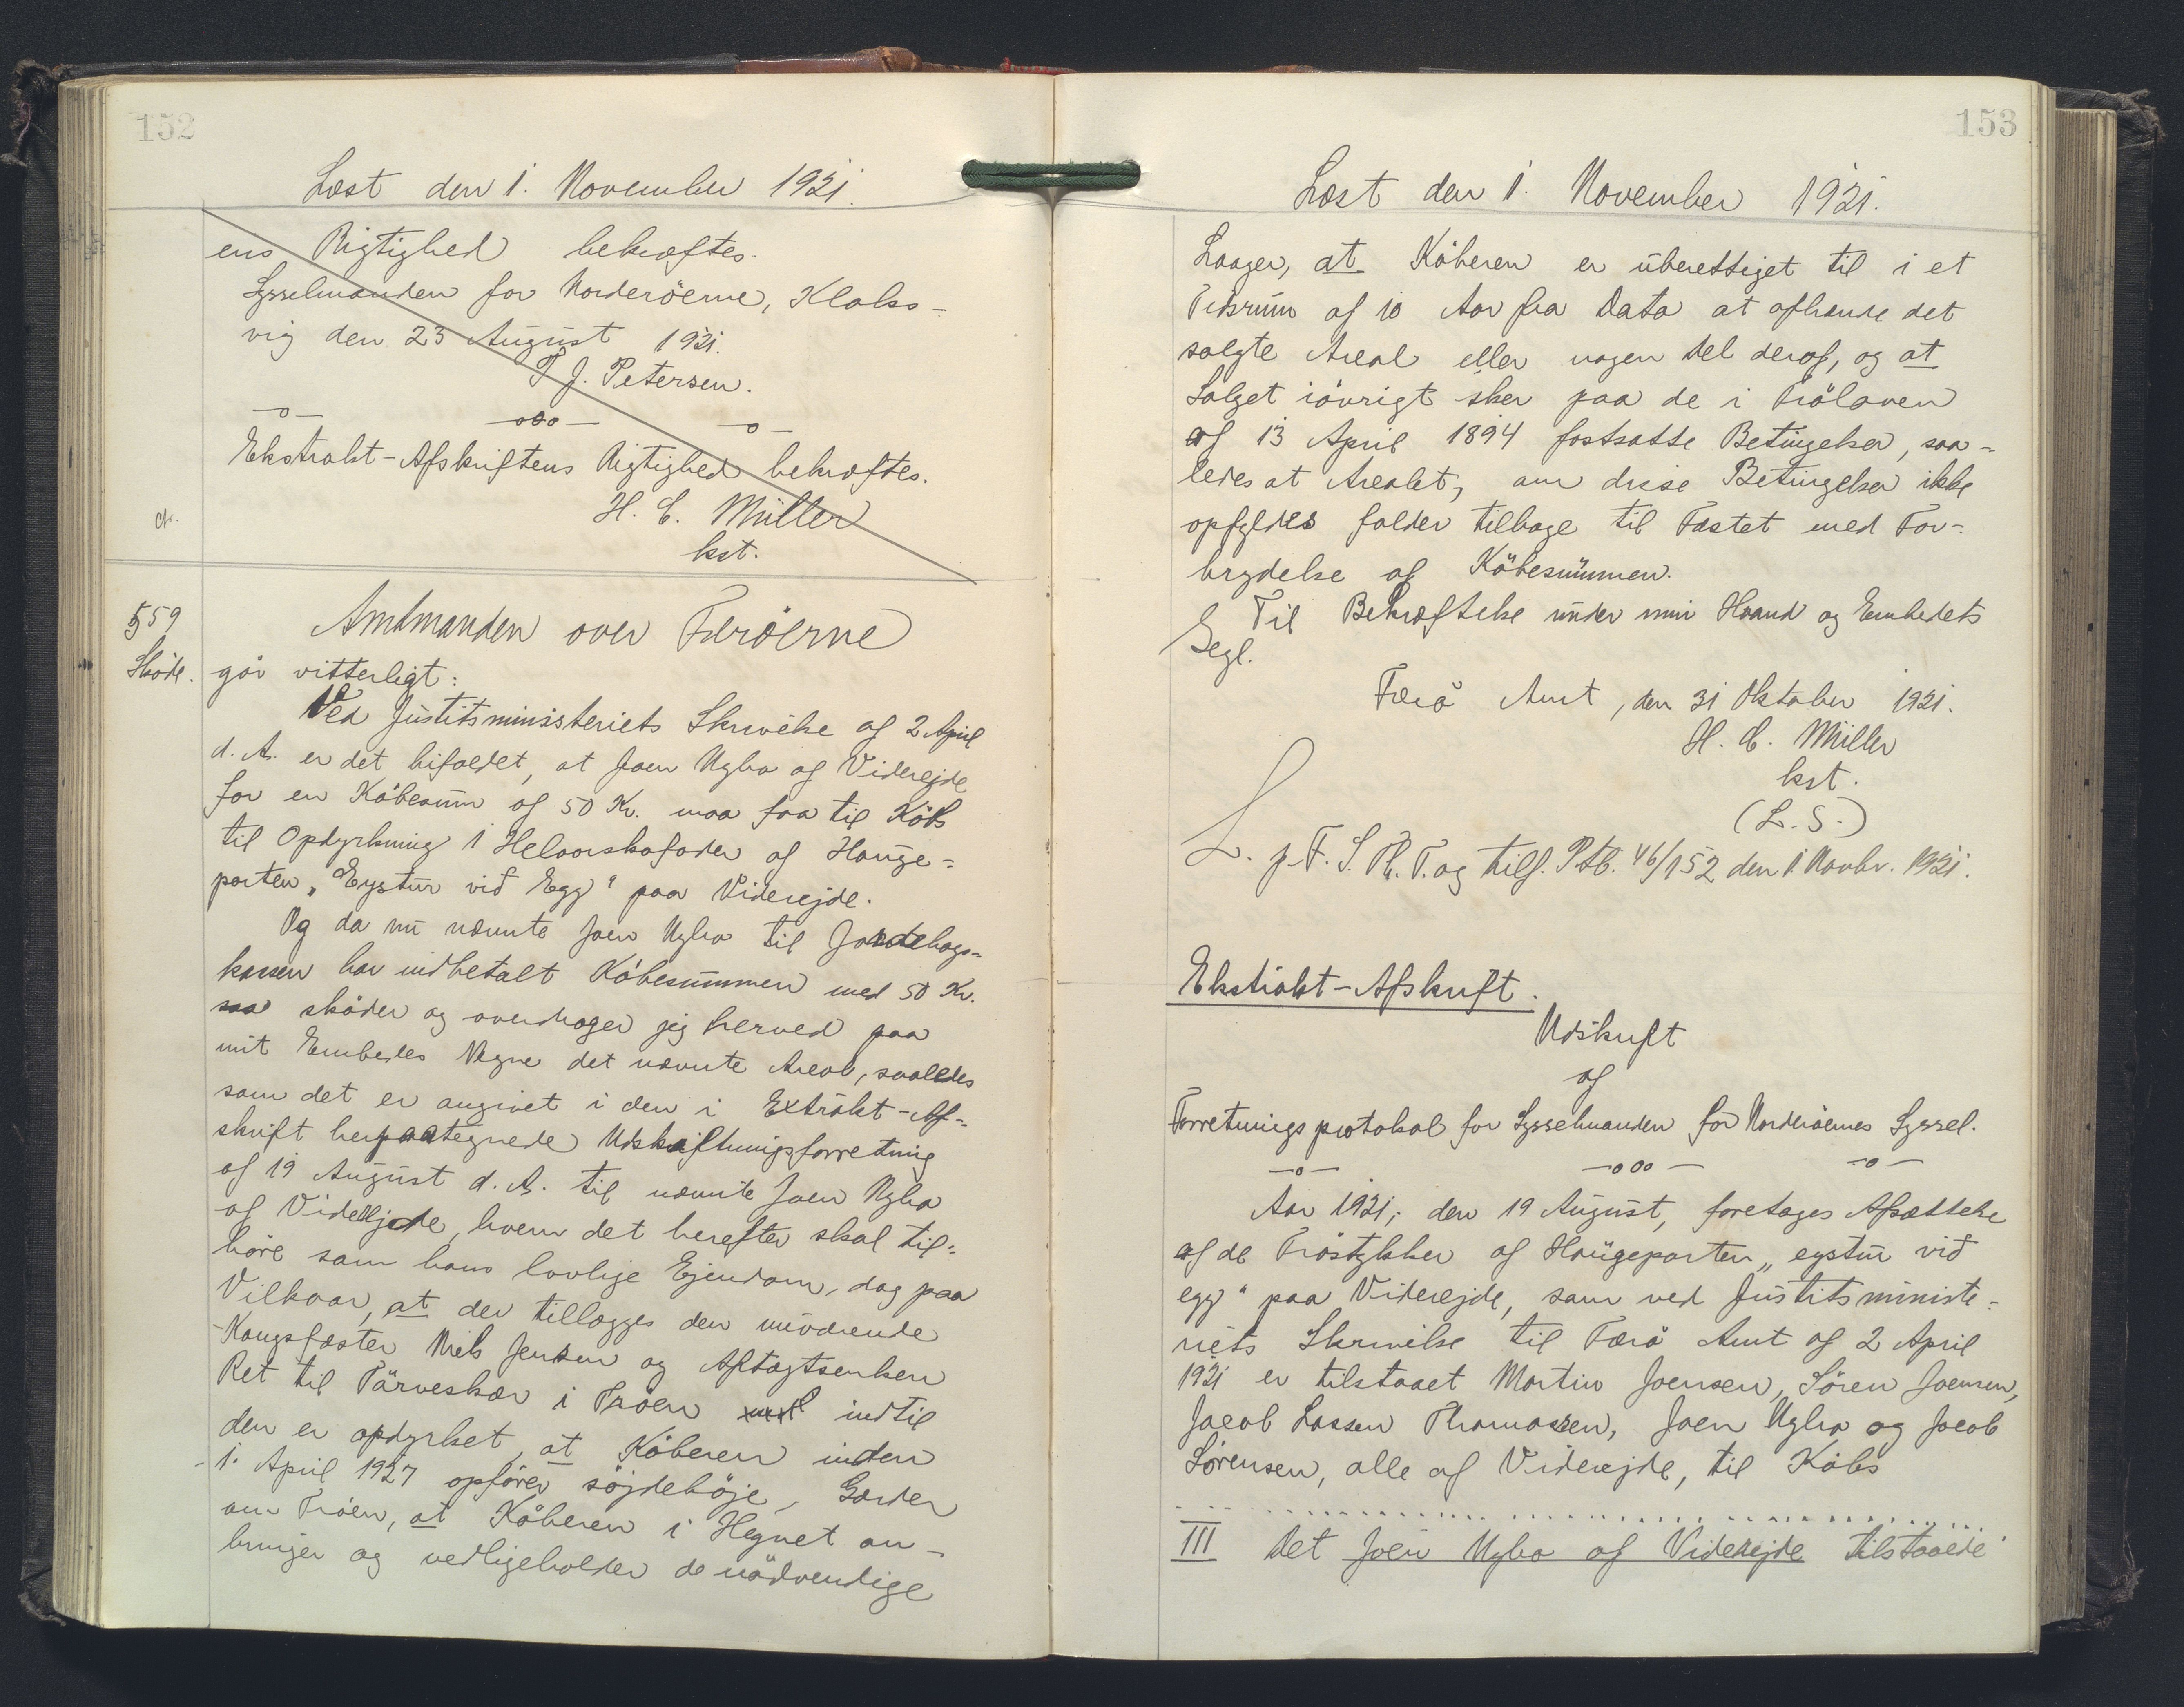 152
Læst den 1. November 1921.
ens Rigtighed bekræftes.
Sysselmanden for Norderöerne, Klaks-
vig den 23 August 1921.
P J. Petersen.
Ekstrakt-Afskriftens Rigtighed bekræftes.
H. C. Müller
kst.
559
Skøde.
Amtmanden over Færöerne
gör vitterligt:
Ved Justitsministeriets Skrivelse af 2 April
d. A. er det bifaldet, at Joen Ugbo af Viderejde
for en Köbesum af 50 Kr. maa faa til Köbs
til Opdyrkning 1 Helaarskofoder af Hauge-
parten „Eystur við Egg" paa Viderejde.
Og da nu nævnte Joen Ugbo til Jordebogs-
kassen har indbetalt Köbesummen med 50 Kr.
saa sköder og overdrager jeg herved paa
mit Embedes Vegne det nævnte Areal, saaledes
som det er angivet i den i Extrakt-Af-
skrift herpaategnede Udskiftningsforretning
af 19 August d. A. til nævnte Joen Ugbo
af Viderejde, hvem det herefter skal til-
höre som hans lovlige Ejendom, dog paa
Vilkaar, at der tillægges den nuværende
Kongsfæster Niels Jensen og Aftægtsenken
Ret til Törveskær i Tröen indtil
den er opdyrket, at Köberen inden
1. April 1927 opförer söjdehöje Gærder
om Tröen, at Köberen i Hegnet an-
bringer og vedligeholder de nödvendige
153
Læst den 1. November 1921.
Laager, at Köberen er uberettiget til i et
Tidsrum af 10 Aar fra Dato at afhænde det
solgte Areal eller nogen Del deraf, og at
Salget iövrigt sker paa de i Trölaven
af 13 April 1894 fastsatte Betingelser, saa-
ledes at Arealet, om disse Betingelser ikke
opfyldes falder tilbage til Fæstet med For-
brydelse af Köbesummen.
Til Bekræftelse under min Haand og Embedets
Segl.
Færö Amt, den 31 Oktober 1921.
H. C. Müller
kst.
(L.S.)
L. p. F. S. Th. T. og tilf. Ptb. 46/152 den 1 Novbr. 1921.
Ekstrakt-Afskrift.
Udskrift
af
Forretningsprotokol for Sysselmanden for Norderöernes Syssel.
Aar 1921, den 19 August, foretages Afsættelse
af de Tröstykker af Haugeparten „eystur við
egg" paa Viderejde, som ved Justitsministe-
riets Skrivelse til Færö Amt af 2 April
1921 er tilstaaet Martin Joensen, Sören Joensen,
Jacob Lassen Thomassen, Joen Ugbo og Jacob
Sörensen, alle af Viderejde, til Köbs
III Det Joen Ugbo af Viderejde tilstaaede